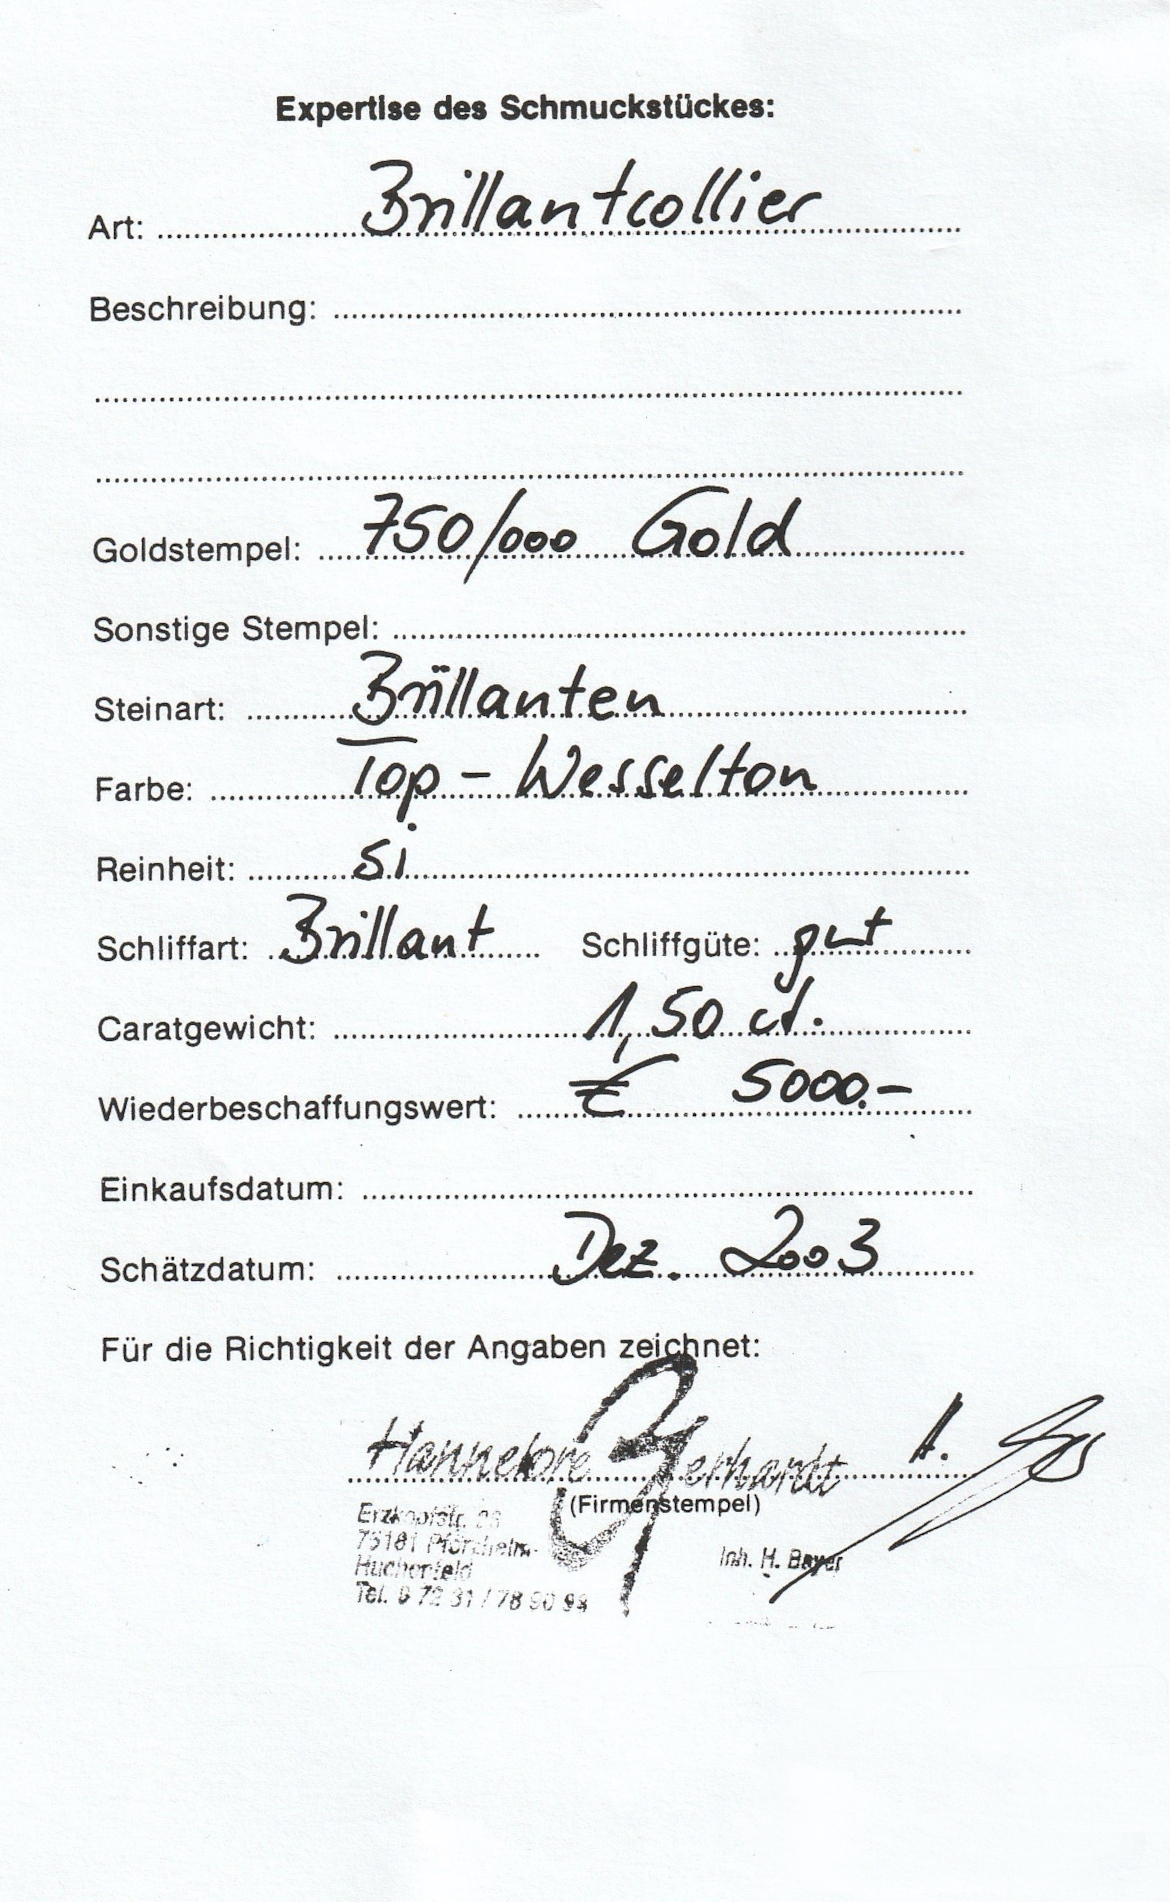 Expertise des Schmuckstückes:
Art: Brillantcollier
Beschreibung:
Goldstempel: 750/000 Gold
Sonstige Stempel:
Steinart: Brillanten
Farbe: Top - Wesselton
Reinheit: si
Schliffart: Brillant Schliffgüte: gut
Caratgewicht: 1,50 ct.
Wiederbeschaffungswert: € 5000.-
Einkaufsdatum:
Schätzdatum: Dez. 2003
Für die Richtigkeit der Angaben zeichnet:
Hannelore Gerhardt
(Firmenstempel)
75181 Pforzheim-
Huchenfeld
Inh. H. Bayer
Tel. 0 72 31 / 78 90